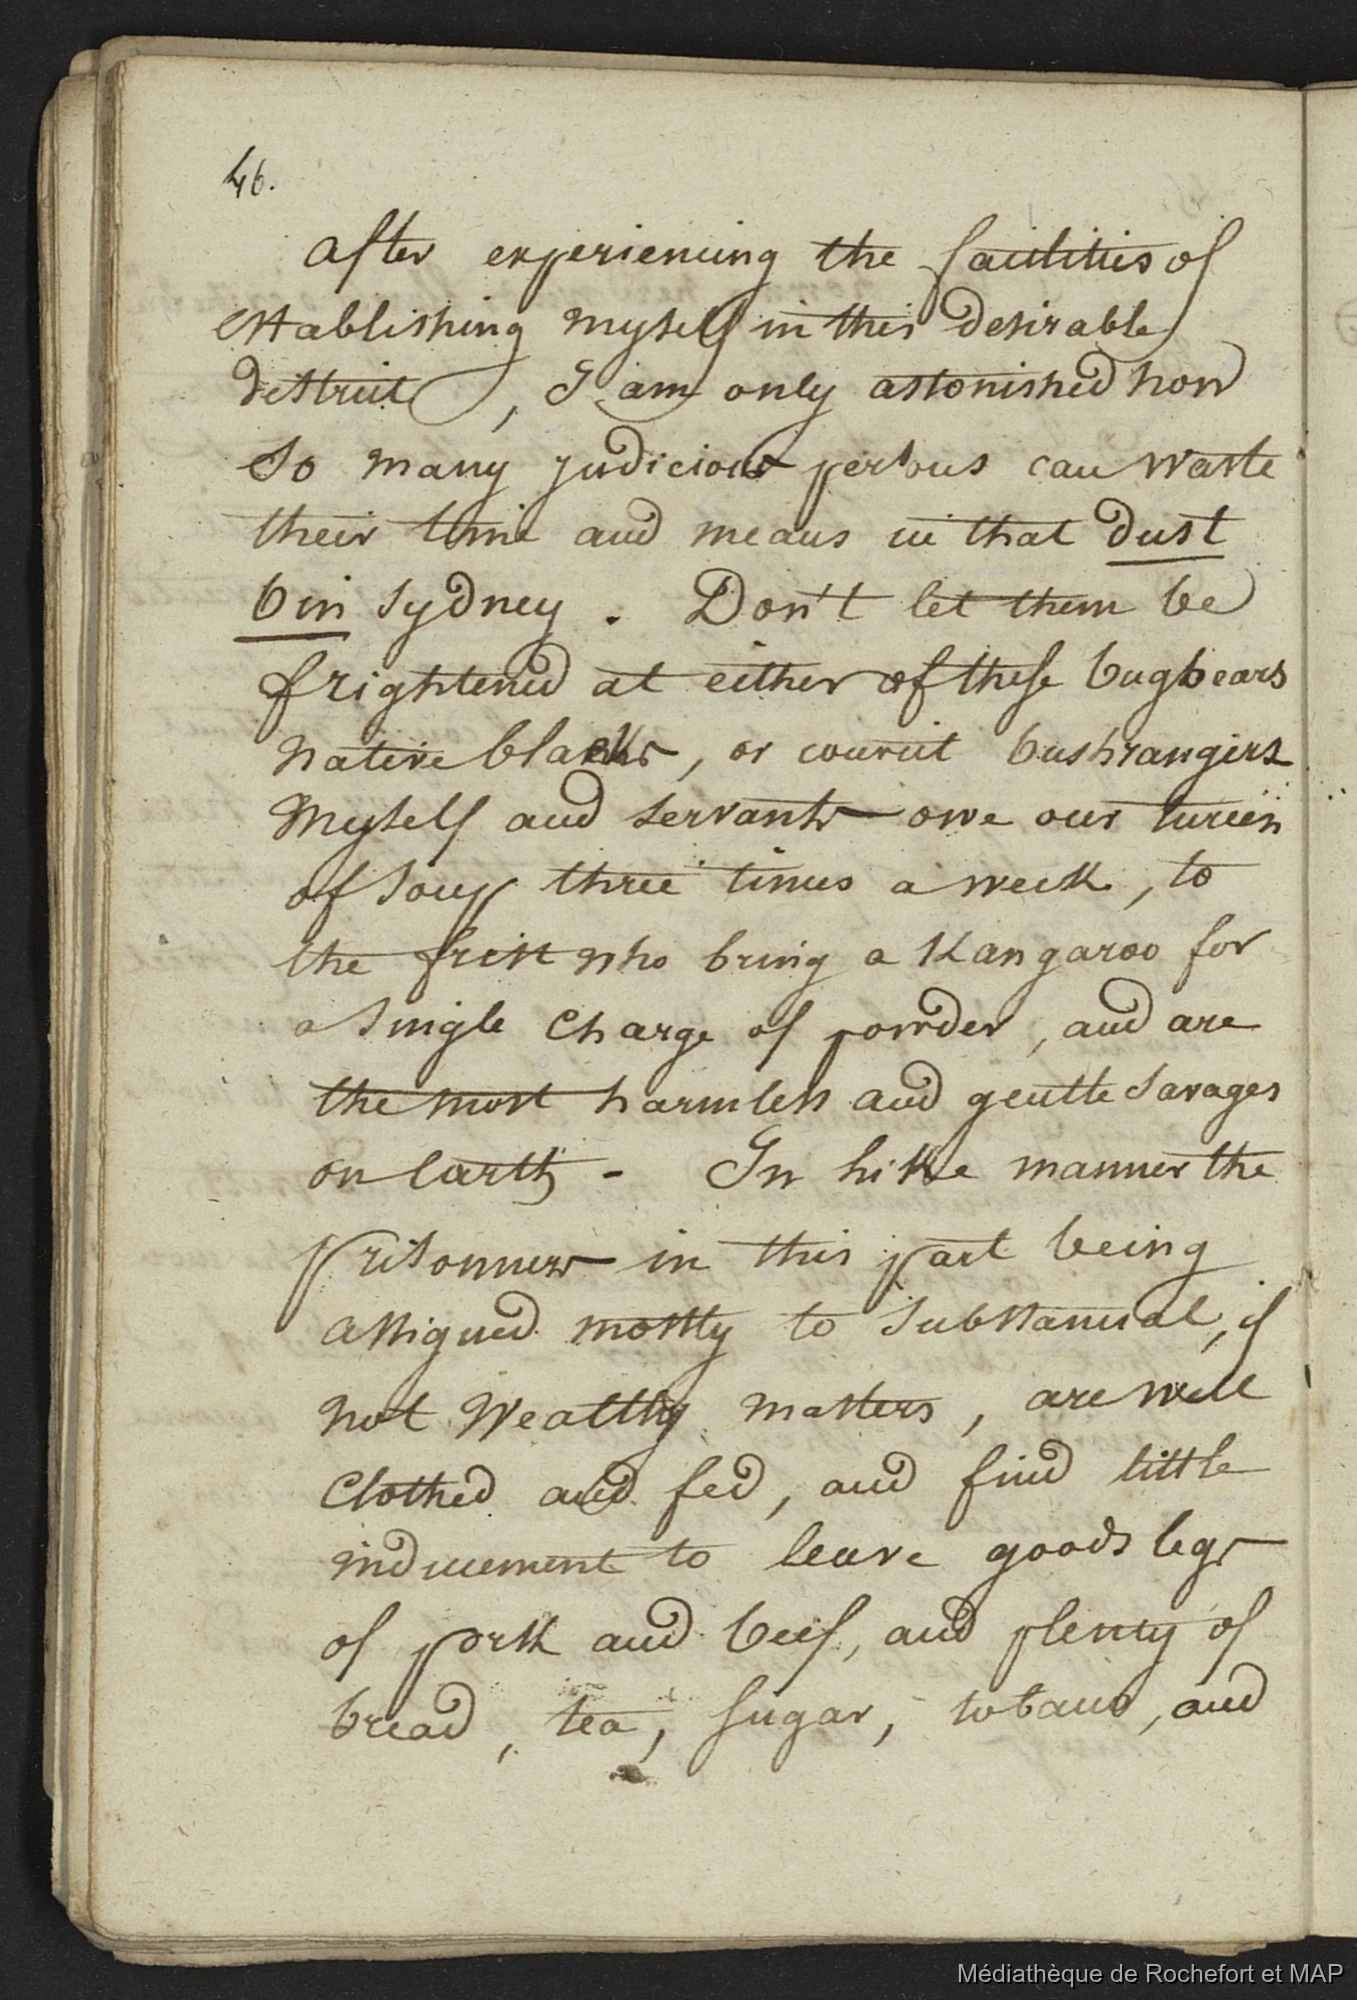 46.
After experiencing the facilities of
establishing myself in this desirable
destrict, I am only astonished how
so many judicious persons can waste
their time and means in that dust
bin Sydney. Don't let them be
frightened at either of these bugbears
native blacks, or convict bushrangers
Myself and servants owe our tureen
of soup three times a week, to
the first who bring a Kangaroo for
a single charge of powder, and are
the most harmless and gentle savages
on earth - In like manner the
prisonners in this part being
assigned mostly to substantial, if
not wealthy masters, are well
clothed and fed, and find little
inducement to leave goods legs
of pork and beef, and plenty of
bread, tea, sugar, tobacco, and
Médiathèque de Rochefort et MAP